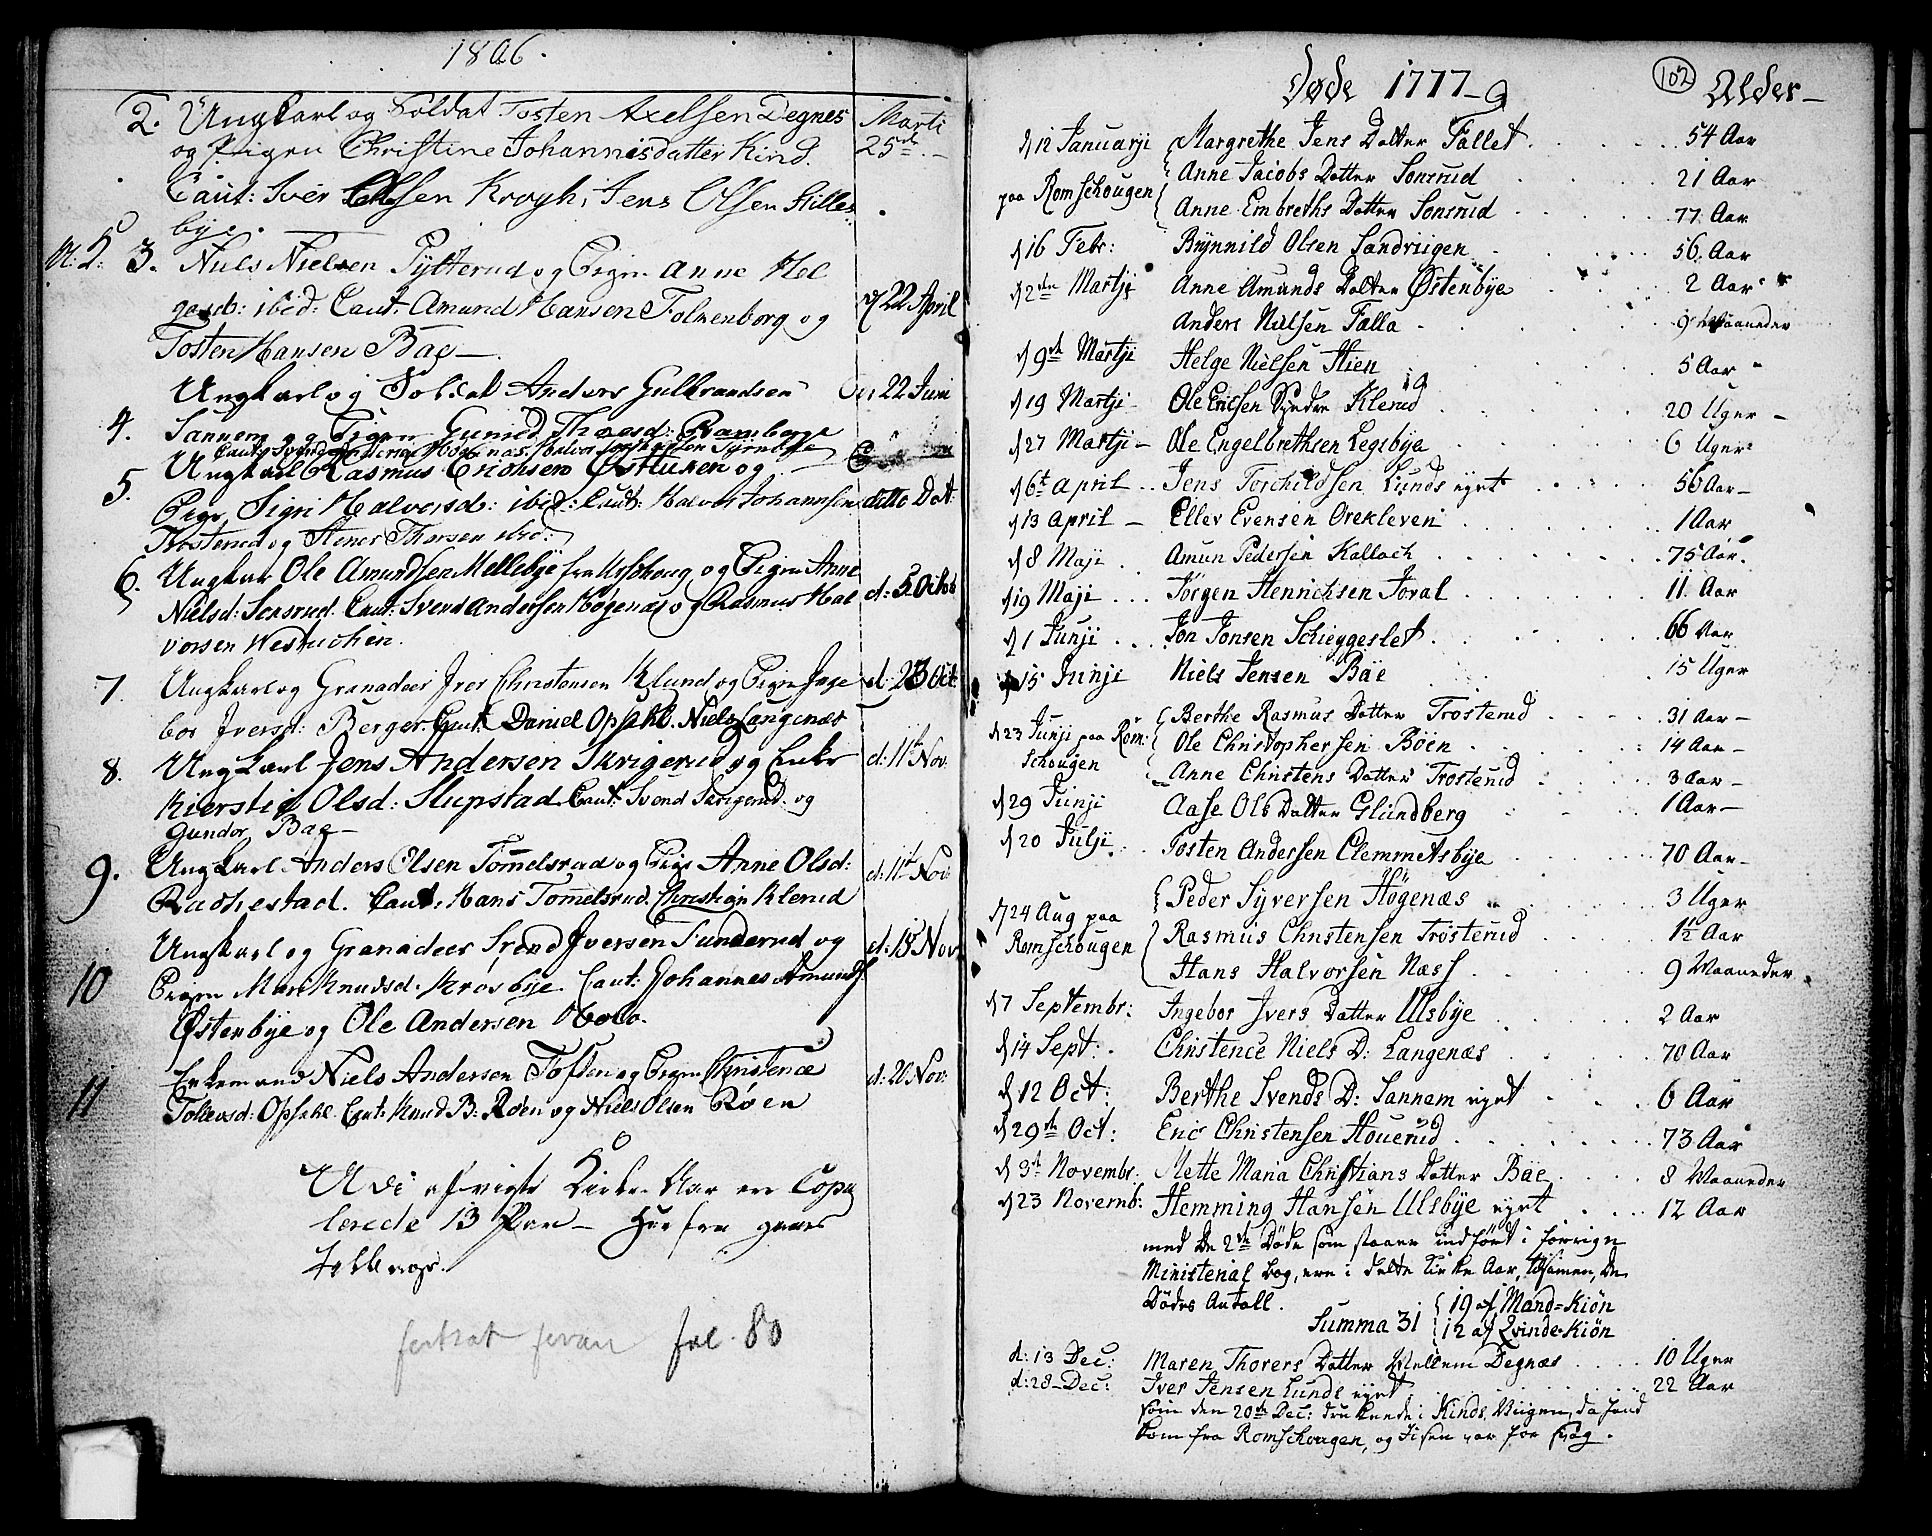 1806.
2. Ungkarl og Soldat Tosten Axelsen Degnes Marti
og Pigen Christine Johannisdatter Kind. 25de
Caut: Iver Olsen Krogh, Jens Olsen Hille
bye.
N: 2: 3. Niels Nielsen Pytterud og Pigen Anne Hel
gesd: ibid: Caut. Amund Hansen Folkenborg og d 22 April
Tosten Hansen Bae
Ungkarl og Soldat Anders Gulbrandsen 22 Juni
4. Sannem og Pigen Gunild Thoresd: Ramberge
Caut: Svend Andersen Høgenas, Halvor
5. Ungkarl Rasmus Erichsen Østkiken og
Pige Sigri Halvorsd: ibid: Caut: Halvor Johannsen ditto Dat:
Trosterud og Stener Thorsen ibid:
6. Ungkar Ole Amundsen Mellebye fra Urschoug og Pigen Anne
Nielsd: Sensrud. Caut: Svend Andersen Høgenæs og Rasmus Hal d: 5 Octob
vorsen Westuchien.
7. Ungkarl og Granadeer Iver Christensen Klund og Pigen Inge d: 23 Oct:
bor Iversd: Berger. Caut: Daniel Opsahl. Niels Langenæs
8. Ungkarl Jens Andersen Skrigerud og Enke d: 11t Nov:
Kierstie Olsd: Slupstad Caut: Svend Skrigerud. og
Gundor Bae
9. Ungkarl Anders Olsen Tommelsrud og Pige Anne Olsd: d: 11t Nov:
Rachestad. Caut. Hans Tommelsrud. Christian Klerud
Ungkarl og Granadeer Svend Iversen Sunderud og d: 15 Nov
10 Pigen Mari Knudsd. Krosbye. Caut: Johannes Amunds
Østenbye og Ole Andersen Holo.
Enkemand Niels Andersen Toften og Pigen Christence d: 20 Nov:
11 Tollevsd: Opsahl Caut: Knud B: Røen og Niels Olsen Røen
Udi afvigte Kirke-Aar er Copu
lerede 13 Par
fortsat foran fol. 80
Døde 1777 102 Alder
d 12 Januarji Margrethe Jens Datter Fallet 54 Aar
Anne Jacobs Datter Sonsrud 21 Aar
paa Romschougen Anne Embreths Datter Sonsrud 77 Aar
d 16 Febr: Brynnild Olsen Sandviigen 56. Aar
d 2den Martji Anne Amunds Datter Østenbye 2 Aar
Anders Nielsen Falla 9 Maaneder
d 9de Martji Helge Nielsen Hien 5 Aar
d 19 Martji Ole Ericsen Syndre Klerud 20 Uger
d 27 Martji Ole Engelbrethsen Legsbye 6 Uger
d 6t April Jens Torchildsen Lunds eyet 56 Aar
d 13 April Ellev Evensen Orekleven 1 Aar
d 8 Maji Amun Pedersen Kallach 75 Aar.
d 19 Maji Jörgen Henrichsen Joval 11 Aar
d 1 Junji Jon Jonsen Schieggeslet 66 Aar
d 15 Junji Niels Jensen Bäe 15 Uger
Berthe Rasmus Datter Trosterud 31 Aar
d 23 Junji paa Rom: Ole Christophersen Böen 14 Aar
Schougen Anne Christens Datter Trosterud 3 Aar
d 29 Junji Aase Ols Datter Glundberg 1 Aar
d 20 Julji Tosten Andersen Clemmetsbye 70 Aar
Peder Syversen Högenæs 3 Uger
d 24 Aug paa Rasmus Christensen Trosterud 1½ Aar
Romschougen Hans Halvorsen Næss 9 Maaneder
d 7 Septembr: Ingebor Ivers Datter Ulsbye 2 Aar
d 14 Sept: Christence Niels D: Langenæs 70 Aar
d 12 Oct: Berthe Svends D: Sannem eyet 6 Aar
d 29de Oct: Eric Christensen Houerud 73 Aar
d 3de Novembr. Mette Maria Christians Datter Bäe 8 Maaneder
d 23 Novemb: Hemming Hansen Ulsbye eyet 12 Aar
med de 2de Døde som staaer indført i forrige
Ministerial bog, ere i dette Kirke Aar, tilsamen, de
Dødes Antall.
Summa 31 19 af Mand-Kiön
12 af Qvinde-Kiön
d: 13 Dec: Maren Thorers Datter Mellem Degnæs 10 Uger
d: 28 Dec: Iver Jensen Lunds eyet 22 Aar
som den 20de Dec: druknede i Kinds Viigen, da hand
kom fra Romschougen, og Isen var for svag.